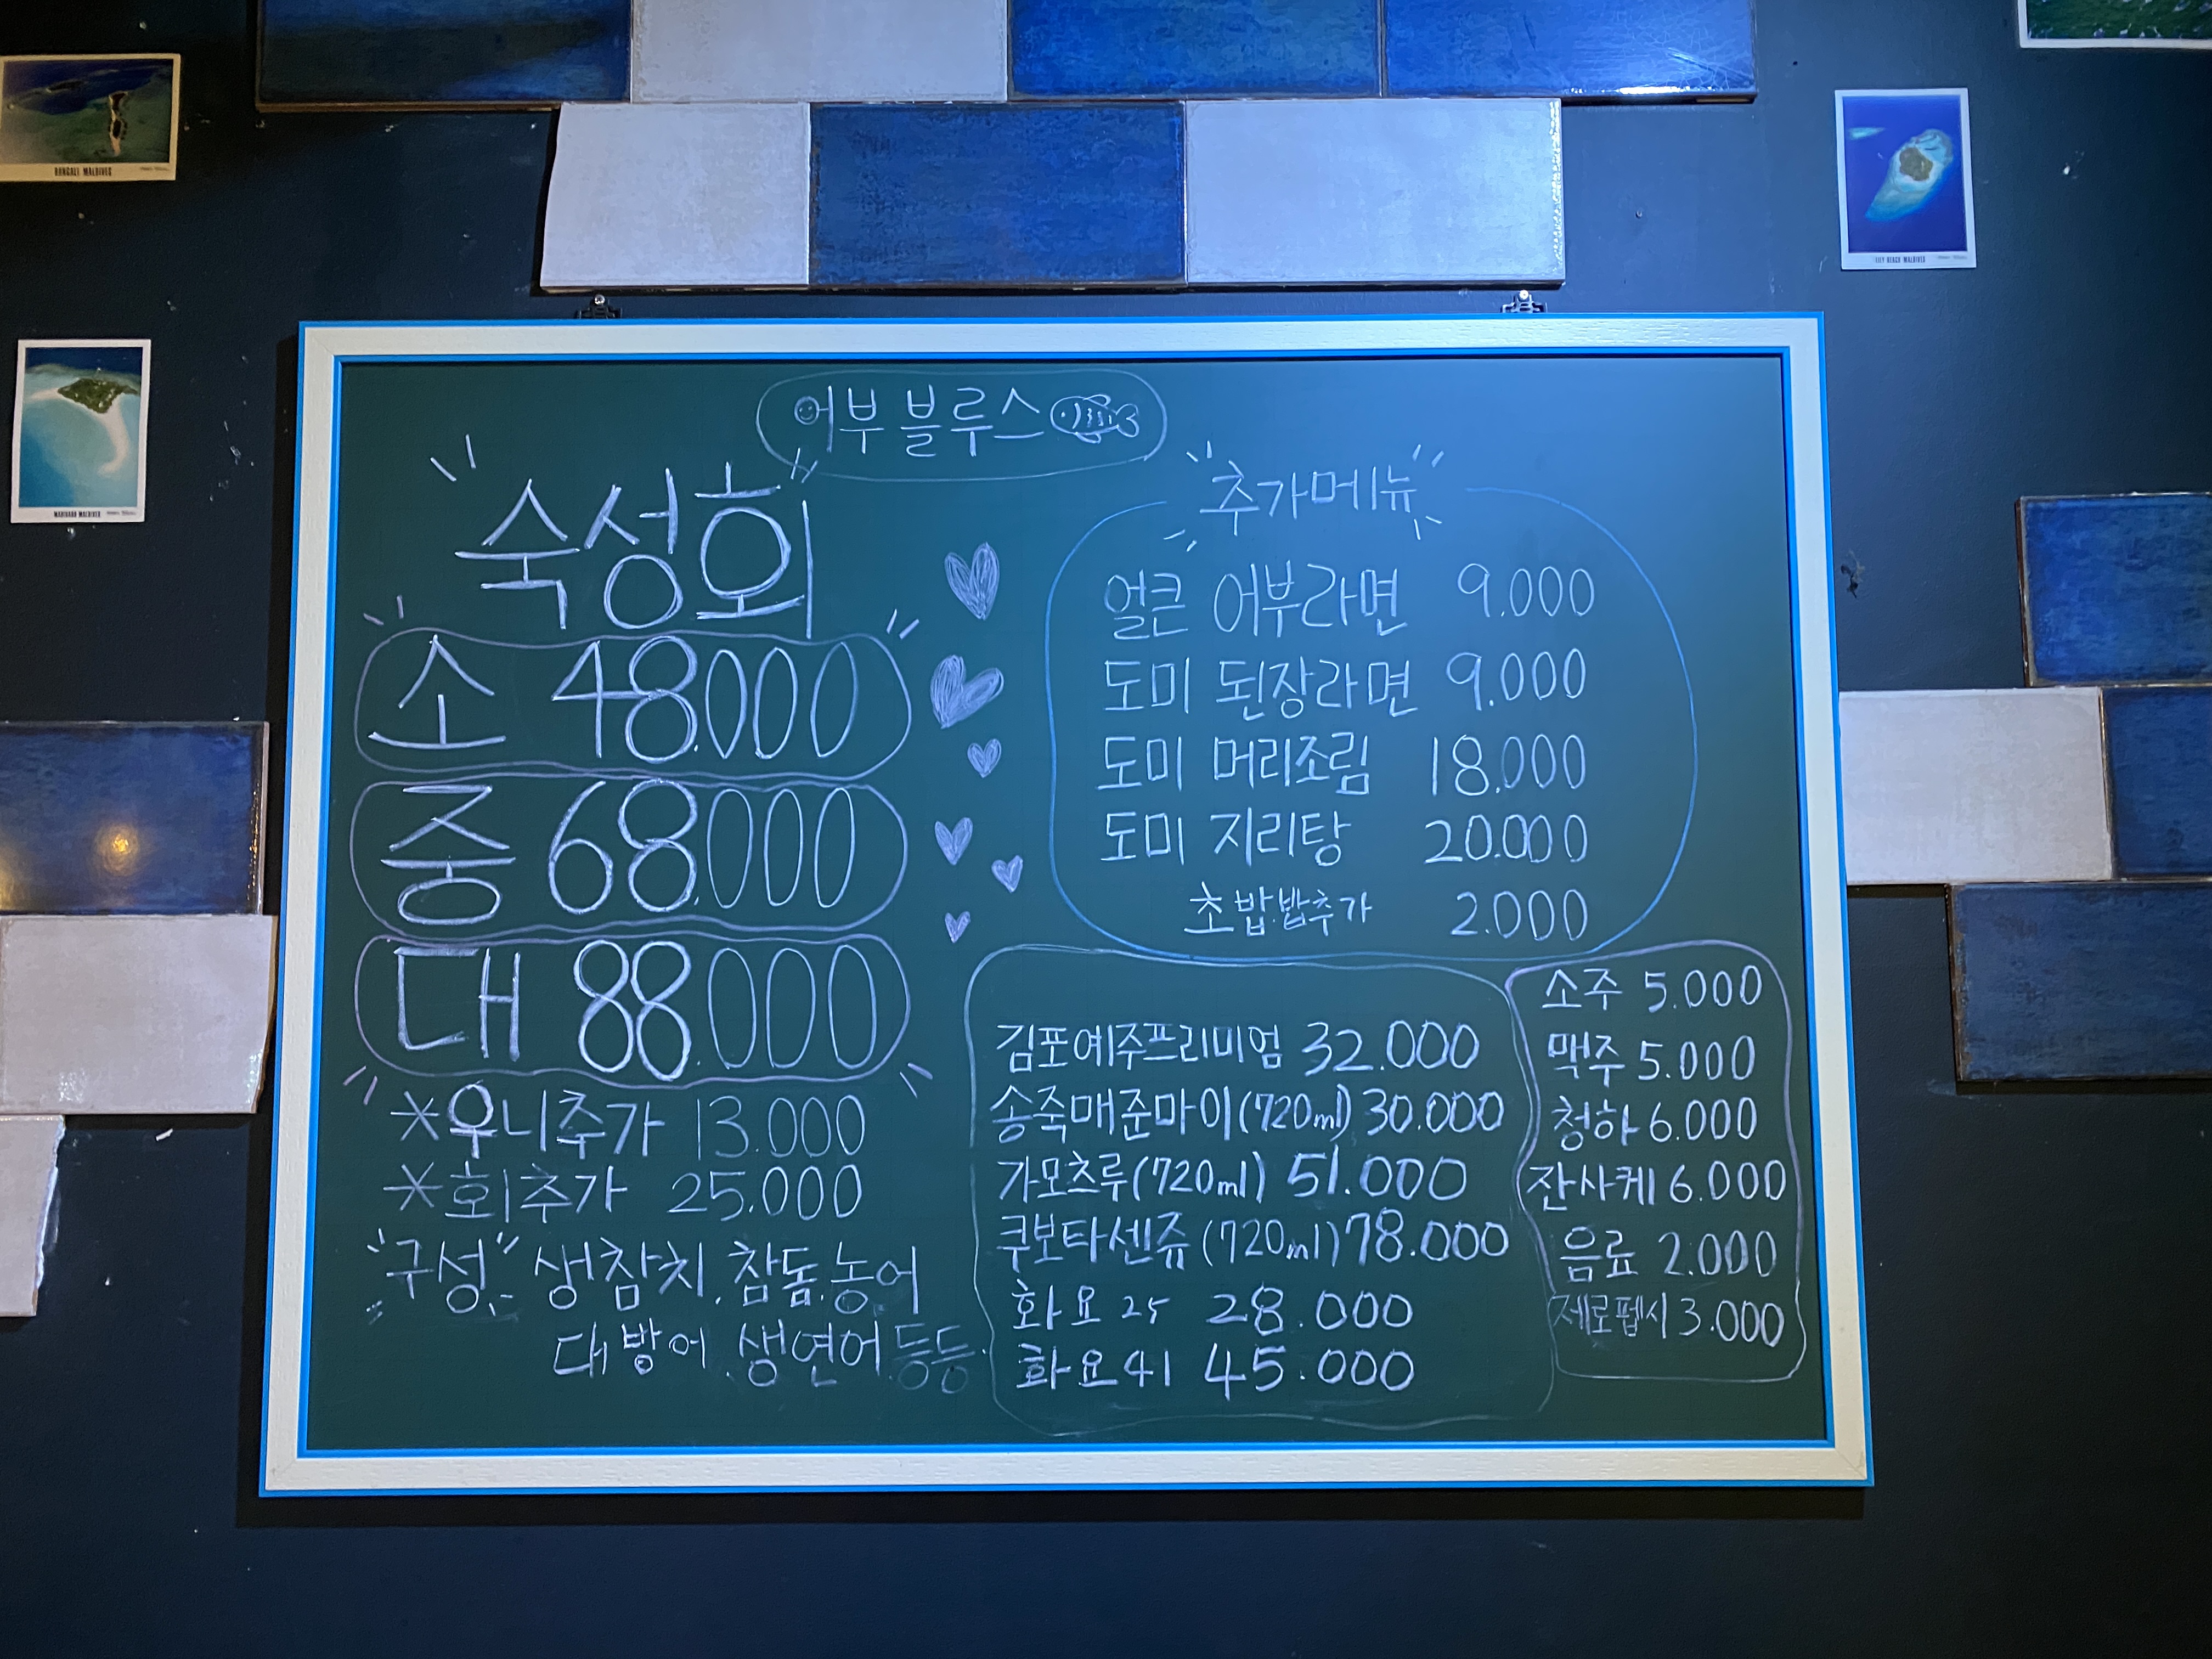 어부블루스
숙성회
소 48.000
중 68.000
대 88.000
*우니추가 13.000
*회추가 25.000
"구성" 생참치.참돔.농어
대방어.생연어등등
추가메뉴
얼큰 어부라면 9.000
도미 된장라면 9.000
도미 머리조림 18.000
도미 지리탕 20.000
초밥.밥추가 2.000
김포예주프리미엄 32.000
송죽매준마이(720ml) 30.000
가모츠루(720ml) 51.000
쿠보타센쥬(720ml) 78.000
화요25 28.000
화요41 45.000
소주 5.000
맥주 5.000
청하 6.000
잔사케 6.000
음료 2.000
제로펩시 3.000
MALDIVES
LILY BEACH MALDIVES
MALDIVES